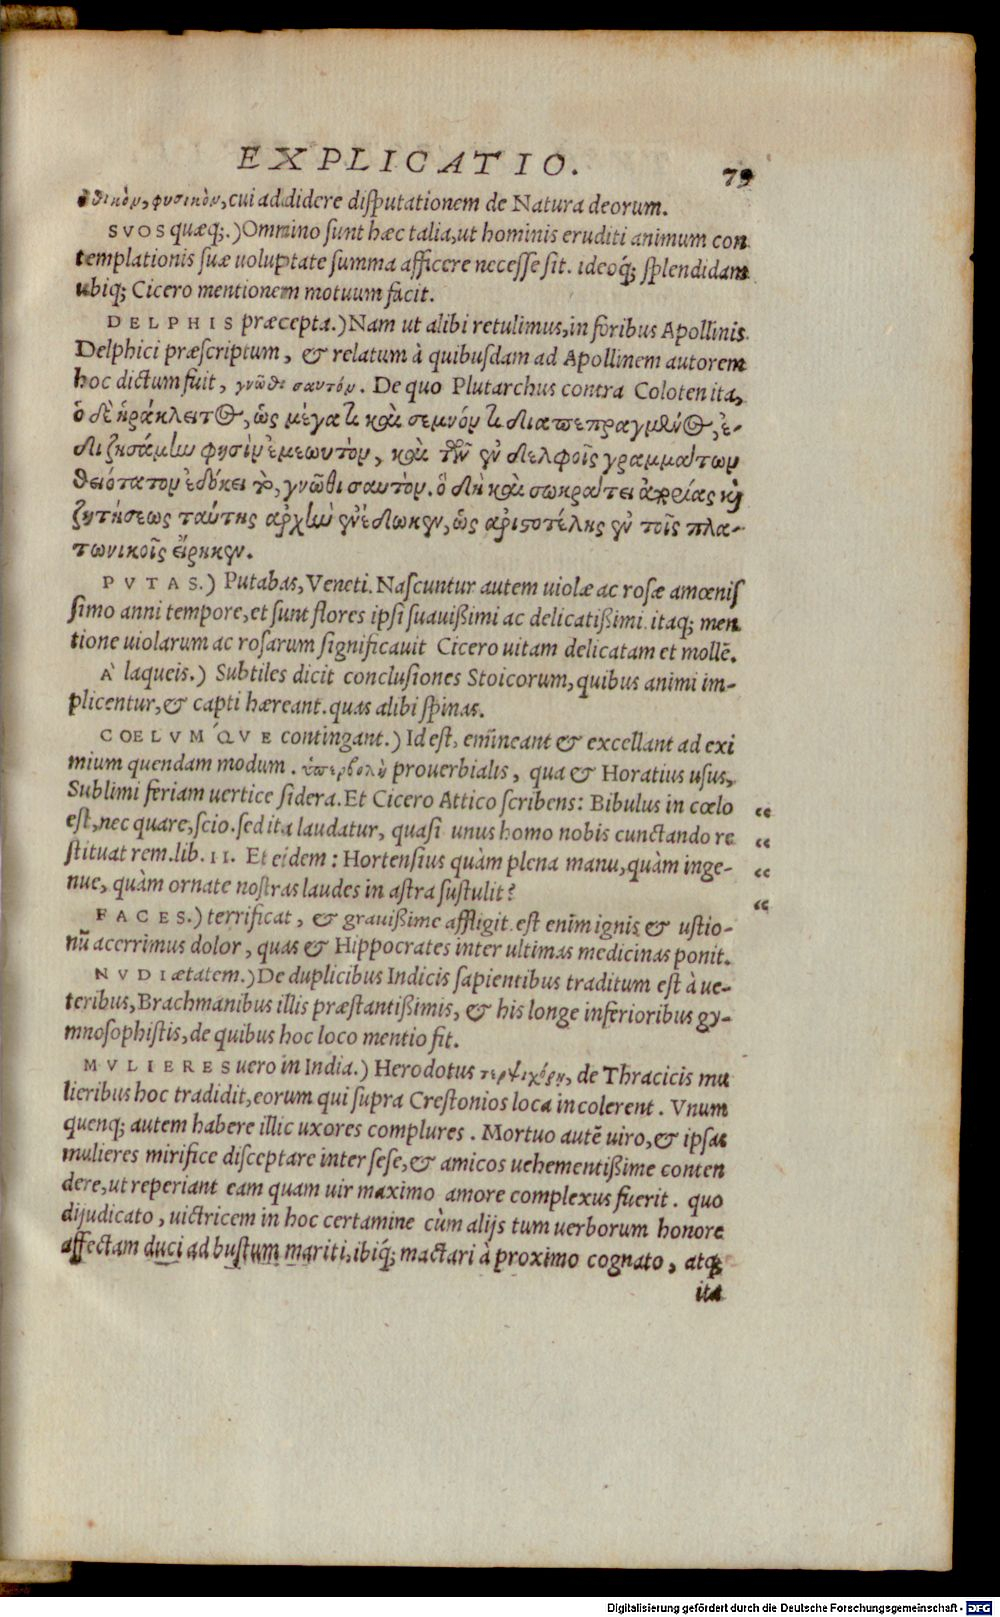 EXPLICATIO. 79
ἠθικὸν, φυσικὸν, cui addidere disputationem de Natura deorum.
SVOS quæq;.) Omnino sunt hæc talia, ut hominis eruditi animum con
templationis suæ uoluptate summa afficere necesse sit. ideoq́; splendidam
ubiq; Cicero mentionem motuum facit.
DELPHIS præcepta.) Nam ut alibi retulimus, in foribus Apollinis
Delphici præscriptum, & relatum à quibusdam ad Apollinem autorem
hoc dictum fuit, γνῶθι σαυτόν. De quo Plutarchus contra Coloten ita,
ὁ δὲ ἡράκλειτος, ὡς μέγα τι καὶ σεμνόν τι διαπεπραγμένος, ἐ-
διζησάμην φησὶν ἐμεωυτὸν, καὶ τῶν ἐν δελφοῖς γραμμάτων
θειότατον ἐδόκει τὸ, γνῶθι σαυτὸν. ὃ δὴ καὶ σωκράτει ἀπορίας καὶ
ζητήσεως ταύτης ἀρχὴν ἐνέδωκεν, ὡς ἀριστοτέλης ἐν τοῖς πλα-
τωνικοῖς εἴρηκεν.
PVTAS.) Putabas, Veneti. Nascuntur autem uiolæ ac rosæ amœnis
simo anni tempore, et sunt flores ipsi suauißimi ac delicatißimi. itaq; men
tione uiolarum ac rosarum significauit Cicero uitam delicatam et mollē.
À laqueis.) Subtiles dicit conclusiones Stoicorum, quibus animi im-
plicentur, & capti hæreant. quas alibi spinas.
COELVM´QVE contingant.) Id est, emineant & excellant ad exi
mium quendam modum. ὑπερβολὴ prouerbialis, qua & Horatius usus,
Sublimi feriam uertice sidera. Et Cicero Attico scribens: Bibulus in cœlo “
est, nec quare, scio. sed ita laudatur, quasi unus homo nobis cunctando re “
stituat rem. lib. II. Et eidem: Hortensius quàm plena manu, quàm inge- “
nue, quàm ornate nostras laudes in astra sustulit? “
FACES.) terrificat, & grauißime affligit. est enim ignis & ustio-
nū acerrimus dolor, quas & Hippocrates inter ultimas medicinas ponit.
NVDI ætatem.) De duplicibus Indicis sapientibus traditum est à ue-
teribus, Brachmanibus illis præstantißimis, & his longe inferioribus gy-
mnosophistis, de quibus hoc loco mentio fit.
MVLIERES uero in India.) Herodotus τερψιχόρῃ, de Thracicis mu
lieribus hoc tradidit, eorum qui supra Crestonios loca incolerent. Vnum
quenq; autem habere illic uxores complures. Mortuo autē uiro, & ipsas
mulieres mirifice disceptare inter sese, & amicos uehementißime conten
dere, ut reperiant eam quam uir maximo amore complexus fuerit. quo
dijudicato, uictricem in hoc certamine cùm alijs tum uerborum honore
affectam duci ad bustum mariti, ibiq́; mactari à proximo cognato, atq;
ita
Digitalisierung gefördert durch die Deutsche Forschungsgemeinschaft - DFG